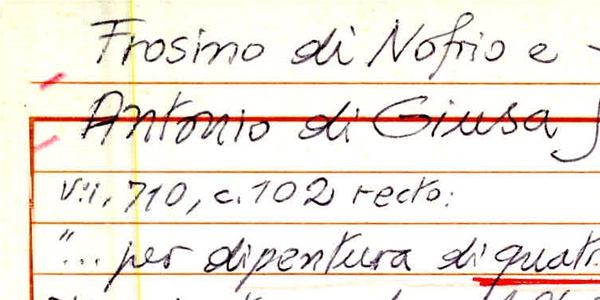 Frosino di Nofrio e
Antonio di Giusa
V:i, 710, c. 102 recto:
"... per dipentura di quatt